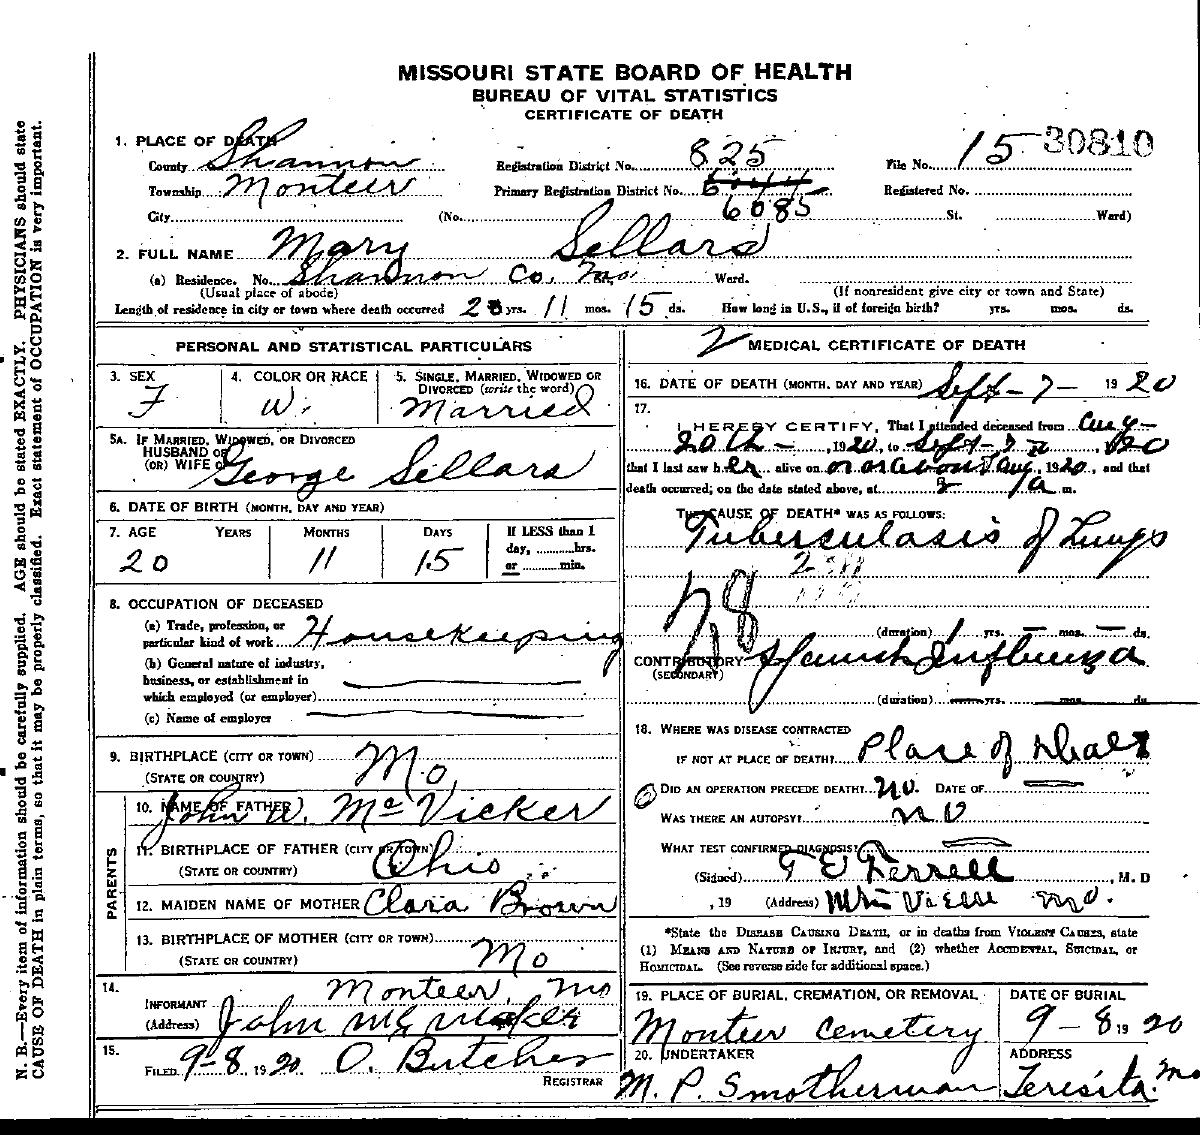 MISSOURI STATE BOARD OF HEALTH
BUREAU OF VITAL STATISTICS
CERTIFICATE OF DEATH
1. PLACE OF DEATH
County Shannon Registration District No. 825 File No. 15 30810
Township Monteer Primary Registration District No. 6085 Registered No.
City (No. St. Ward)
2. FULL NAME Mary Sellars
(a) Residence. No. Shannon Co. Mo. Ward.
(Usual place of abode) (If nonresident give city or town and State)
Length of residence in city or town where death occurred 20 yrs. 11 mos. 15 ds. How long in U.S., if of foreign birth? yrs. mos. ds.
PERSONAL AND STATISTICAL PARTICULARS
3. SEX 4. COLOR OR RACE 5. SINGLE, MARRIED, WIDOWED OR
DIVORCED (write the word)
F W. Married
5A. IF MARRIED, WIDOWED, OR DIVORCED
HUSBAND OF
(OR) WIFE OF George Sellars
6. DATE OF BIRTH (MONTH, DAY AND YEAR)
7. AGE YEARS MONTHS DAYS If LESS than 1
day, hrs.
or min.
20 11 15
8. OCCUPATION OF DECEASED
(a) Trade, profession, or
particular kind of work Housekeeping
(b) General nature of industry,
business, or establishment in
which employed (or employer)
(c) Name of employer
9. BIRTHPLACE (CITY OR TOWN)
(STATE OR COUNTRY) Mo.
PARENTS
10. NAME OF FATHER John W. McVicker
11. BIRTHPLACE OF FATHER (CITY OR TOWN)
(STATE OR COUNTRY) Ohio
12. MAIDEN NAME OF MOTHER Clara Brown
13. BIRTHPLACE OF MOTHER (CITY OR TOWN)
(STATE OR COUNTRY) Mo
14.
Monteer, Mo
INFORMANT
(Address) John
15.
FILED 9-8 1920 O. Butcher
REGISTRAR
2 MEDICAL CERTIFICATE OF DEATH
16. DATE OF DEATH (MONTH, DAY AND YEAR) Sept-7- 1920
17.
I HEREBY CERTIFY, That I attended deceased from Aug-
20th- , 1920, to Sept-7 , 1920
that I last saw her alive on or about Aug, 1920, and that
death occurred, on the date stated above, at a m.
THE CAUSE OF DEATH* WAS AS FOLLOWS:
Tuberculasis of Lungs
28
(duration) 1 yrs. — mos. — ds.
CONTRIBUTORY Spanish Influenza
(SECONDARY)
(duration) yrs. mos. ds.
18. WHERE WAS DISEASE CONTRACTED
IF NOT AT PLACE OF DEATH? Place of Deat
DID AN OPERATION PRECEDE DEATH? no. DATE OF
WAS THERE AN AUTOPSY? no
WHAT TEST CONFIRMED DIAGNOSIS?
(Signed) T E Ferrell , M. D
, 19 (Address) Mtn View Mo.
*State the DISEASE CAUSING DEATH, or in deaths from VIOLENT CAUSES, state
(1) MEANS AND NATURE OF INJURY, and (2) whether ACCIDENTAL, SUICIDAL, or
HOMICIDAL. (See reverse side for additional space.)
19. PLACE OF BURIAL, CREMATION, OR REMOVAL DATE OF BURIAL
Monteer Cemetery 9-8 1920
20. UNDERTAKER ADDRESS
M. P. Smotherman Teresita. Mo
N. B.—Every item of information should be carefully supplied. AGE should be stated EXACTLY. PHYSICIANS should state
CAUSE OF DEATH in plain terms, so that it may be properly classified. Exact statement of OCCUPATION is very important.